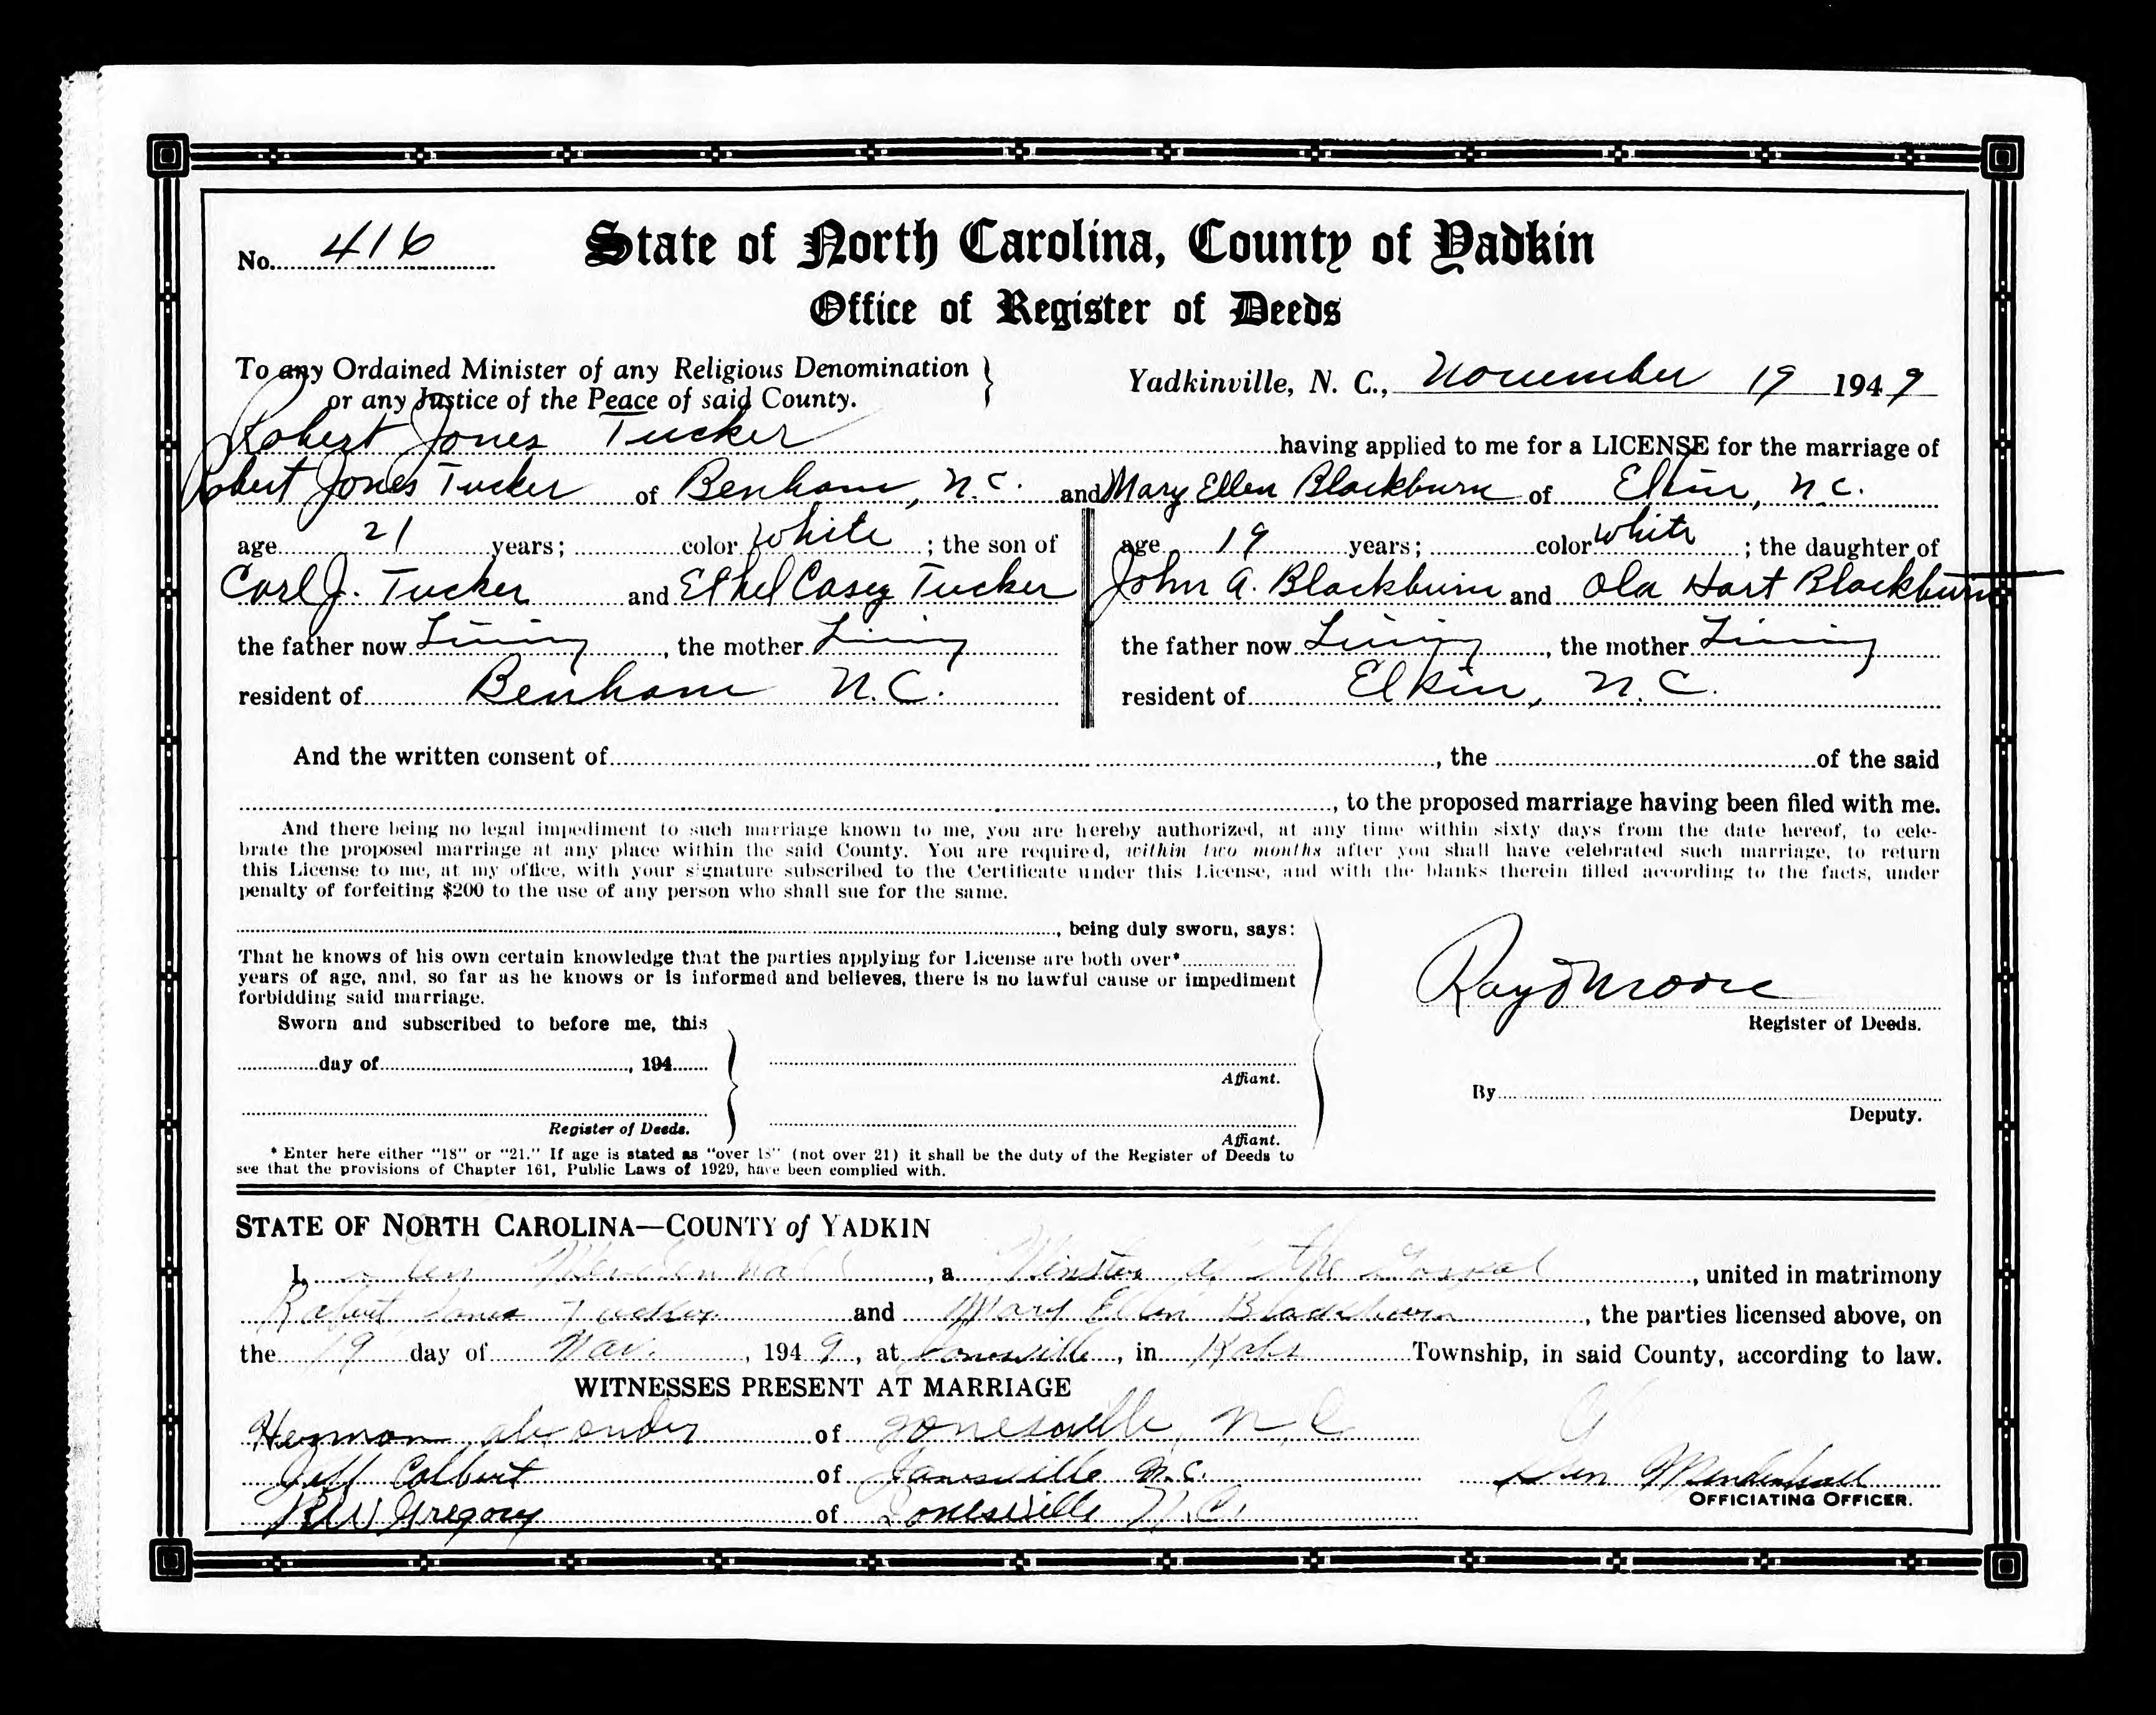 No. 416 State of North Carolina, County of Yadkin
Office of Register of Deeds
To any Ordained Minister of any Religious Denomination
or any Justice of the Peace of said County.
Yadkinville, N. C., November 19 1949
Robert Jones Tucker having applied to me for a LICENSE for the marriage of
Robert Jones Tucker of Benham, N.C. and Mary Ellen Blackburn of Elkin, N.C.
age 21 years; color White; the son of
Carl J. Tucker and Ethel Casey Tucker
the father now Living, the mother Living
resident of Benham N.C.
age 19 years; color White; the daughter of
John A. Blackburn and Ola Hart Blackburn
the father now Living, the mother Living
resident of Elkin, N.C.
And the written consent of , the of the said
, to the proposed marriage having been filed with me.
And there being no legal impediment to such marriage known to me, you are hereby authorized, at any time within sixty days from the date hereof, to cele-
brate the proposed marriage at any place within the said County. You are required, within two months after you shall have celebrated such marriage, to return
this License to me, at my office, with your signature subscribed to the Certificate under this License, and with the blanks therein filled according to the facts, under
penalty of forfeiting $200 to the use of any person who shall sue for the same.
, being duly sworn, says:
That he knows of his own certain knowledge that the parties applying for License are both over*
years of age, and, so far as he knows or is informed and believes, there is no lawful cause or impediment
forbidding said marriage.
Sworn and subscribed to before me, this
day of , 194
Register of Deeds.
Affiant.
Affiant.
* Enter here either "18" or "21." If age is stated as "over 18" (not over 21) it shall be the duty of the Register of Deeds to
see that the provisions of Chapter 161, Public Laws of 1929, have been complied with.
Ray Moore
Register of Deeds.
By
Deputy.
STATE OF NORTH CAROLINA—COUNTY of YADKIN
I, Mendenhall, a Minister of the Gospel, united in matrimony
Robert Jones Tucker and Mary Ellen Blackburn, the parties licensed above, on
the 19 day of Nov., 1949, at Jonesville, in Township, in said County, according to law.
WITNESSES PRESENT AT MARRIAGE
Herman Alexander of Jonesville, N.C.
Jeff Colbert of Jonesville N.C.
R W Gregory of Jonesville N.C.
Mendenhall
OFFICIATING OFFICER.